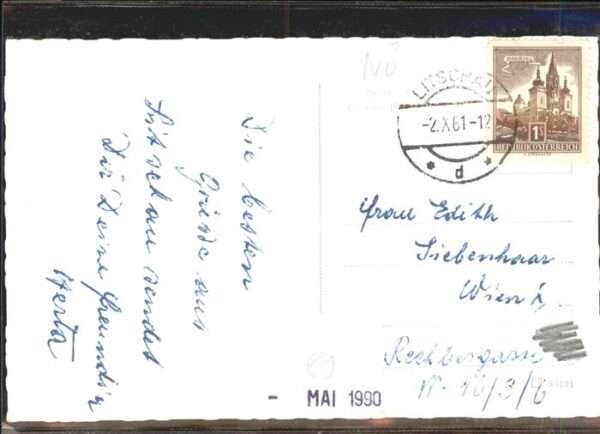 Die besten
Grüsse aus
Litschau sendet
Dir Deine Freundin
Herta
NÖ
LITSCHAU
-2.X.61-12
* d *
1S
REPUBLIK ÖSTERREICH
Frau Edith
Siebenhaar
Wien
Rechbergasse
- MAI 1990